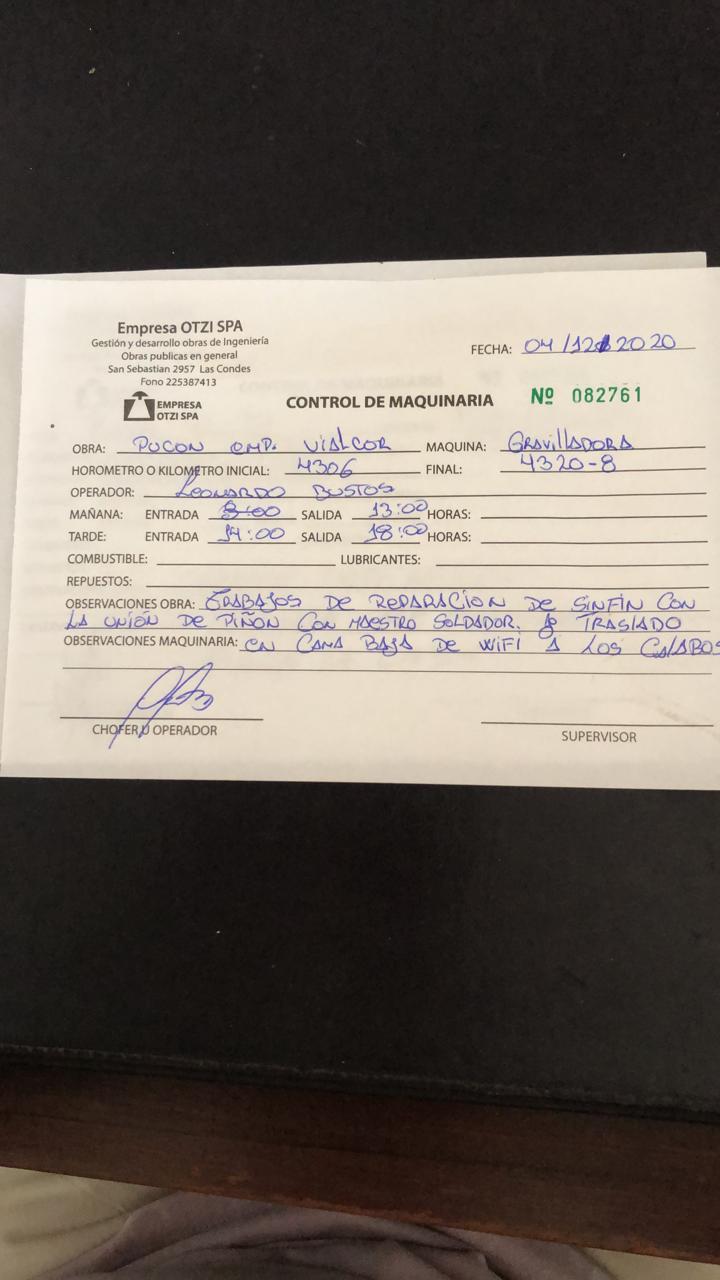 Empresa OTZI SPA
Gestión y desarrollo obras de Ingeniería
Obras publicas en general
San Sebastian 2957 Las Condes
Fono 225387413
EMPRESA
OTZI SPA
FECHA: 04/12/2020
CONTROL DE MAQUINARIA Nº 082761
OBRA: PUCON OMP. VIALCOR MAQUINA: GRAVILLADORA
HOROMETRO O KILOMETRO INICIAL: 4306 FINAL: 4320-8
OPERADOR: LEONARDO BUSTOS
MAÑANA: ENTRADA 8:00 SALIDA 13:00 HORAS:
TARDE: ENTRADA 14:00 SALIDA 18:00 HORAS:
COMBUSTIBLE: LUBRICANTES:
REPUESTOS:
OBSERVACIONES OBRA: TRABAJOS DE REPARACION DE SINFIN CON
LA UNIÓN DE PIÑON CON MAESTRO SOLDADOR. TRASLADO
OBSERVACIONES MAQUINARIA: EN CAMA BAJA DE WIFI A LOS
CHOFER U OPERADOR
SUPERVISOR